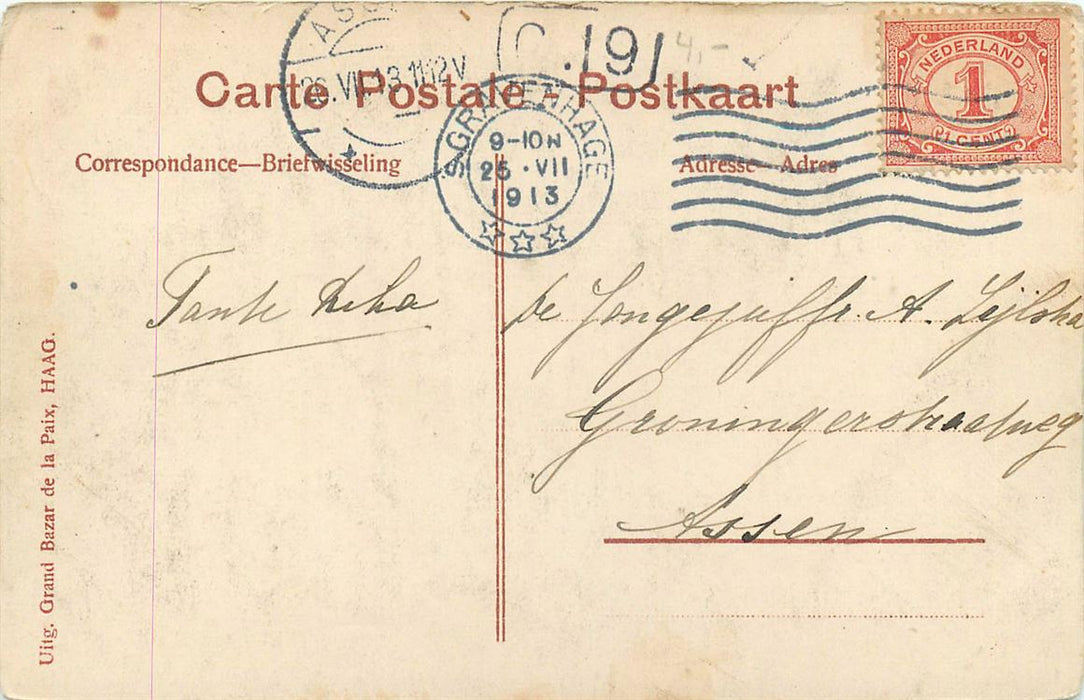 Carte Postale - Postkaart
Correspondance—Briefwisseling
Adresse—Adres
NEDERLAND
1
CENT
26.VII.13.11-12V
★
191
4,-
'S GRAVENHAGE
9-10N
25 · VII
1913
Tante
De Jongejuffr. A.
Groningerstraatweg
Assen
Uitg. Grand Bazar de la Paix, HAAG.